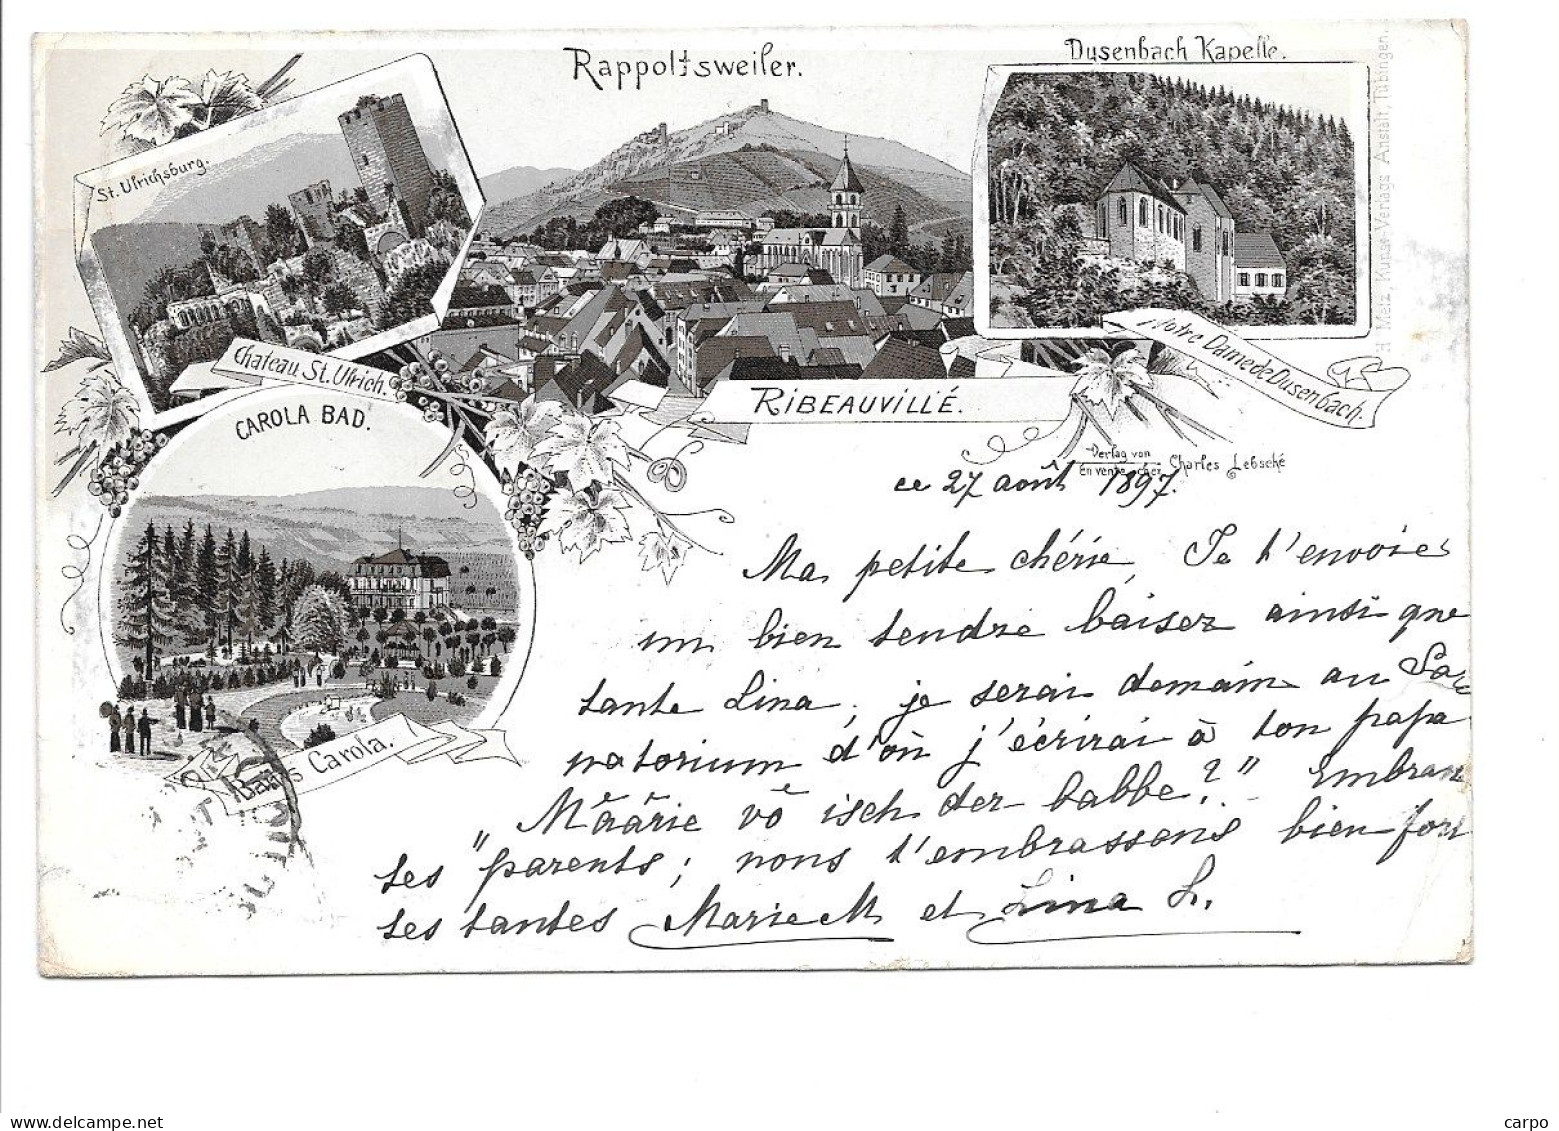 Rappoltsweiler.
Dusenbach Kapelle.
St. Ulrichsburg.
H. Metz, Kunst-Verlags-Anstalt, Tübingen.
Chateau St. Ulrich.
RIBEAUVILLÉ.
Notre Dame de Dusenbach.
CAROLA BAD.
Verlag von
En vente chez Charles Lebsché
Bains Carola.
ce 27 août 1897.
Ma petite chérie, Je t'envoie
un bien tendre baiser ainsi que
tante Lina, je serai demain au Sa
natorium d'où j'écrirai à ton papa
"Măărie vŏ isch der babbe?" Embran
tes parents; nous t'embrassons bien fort
tes tantes Marie M et Lina L.
carpo